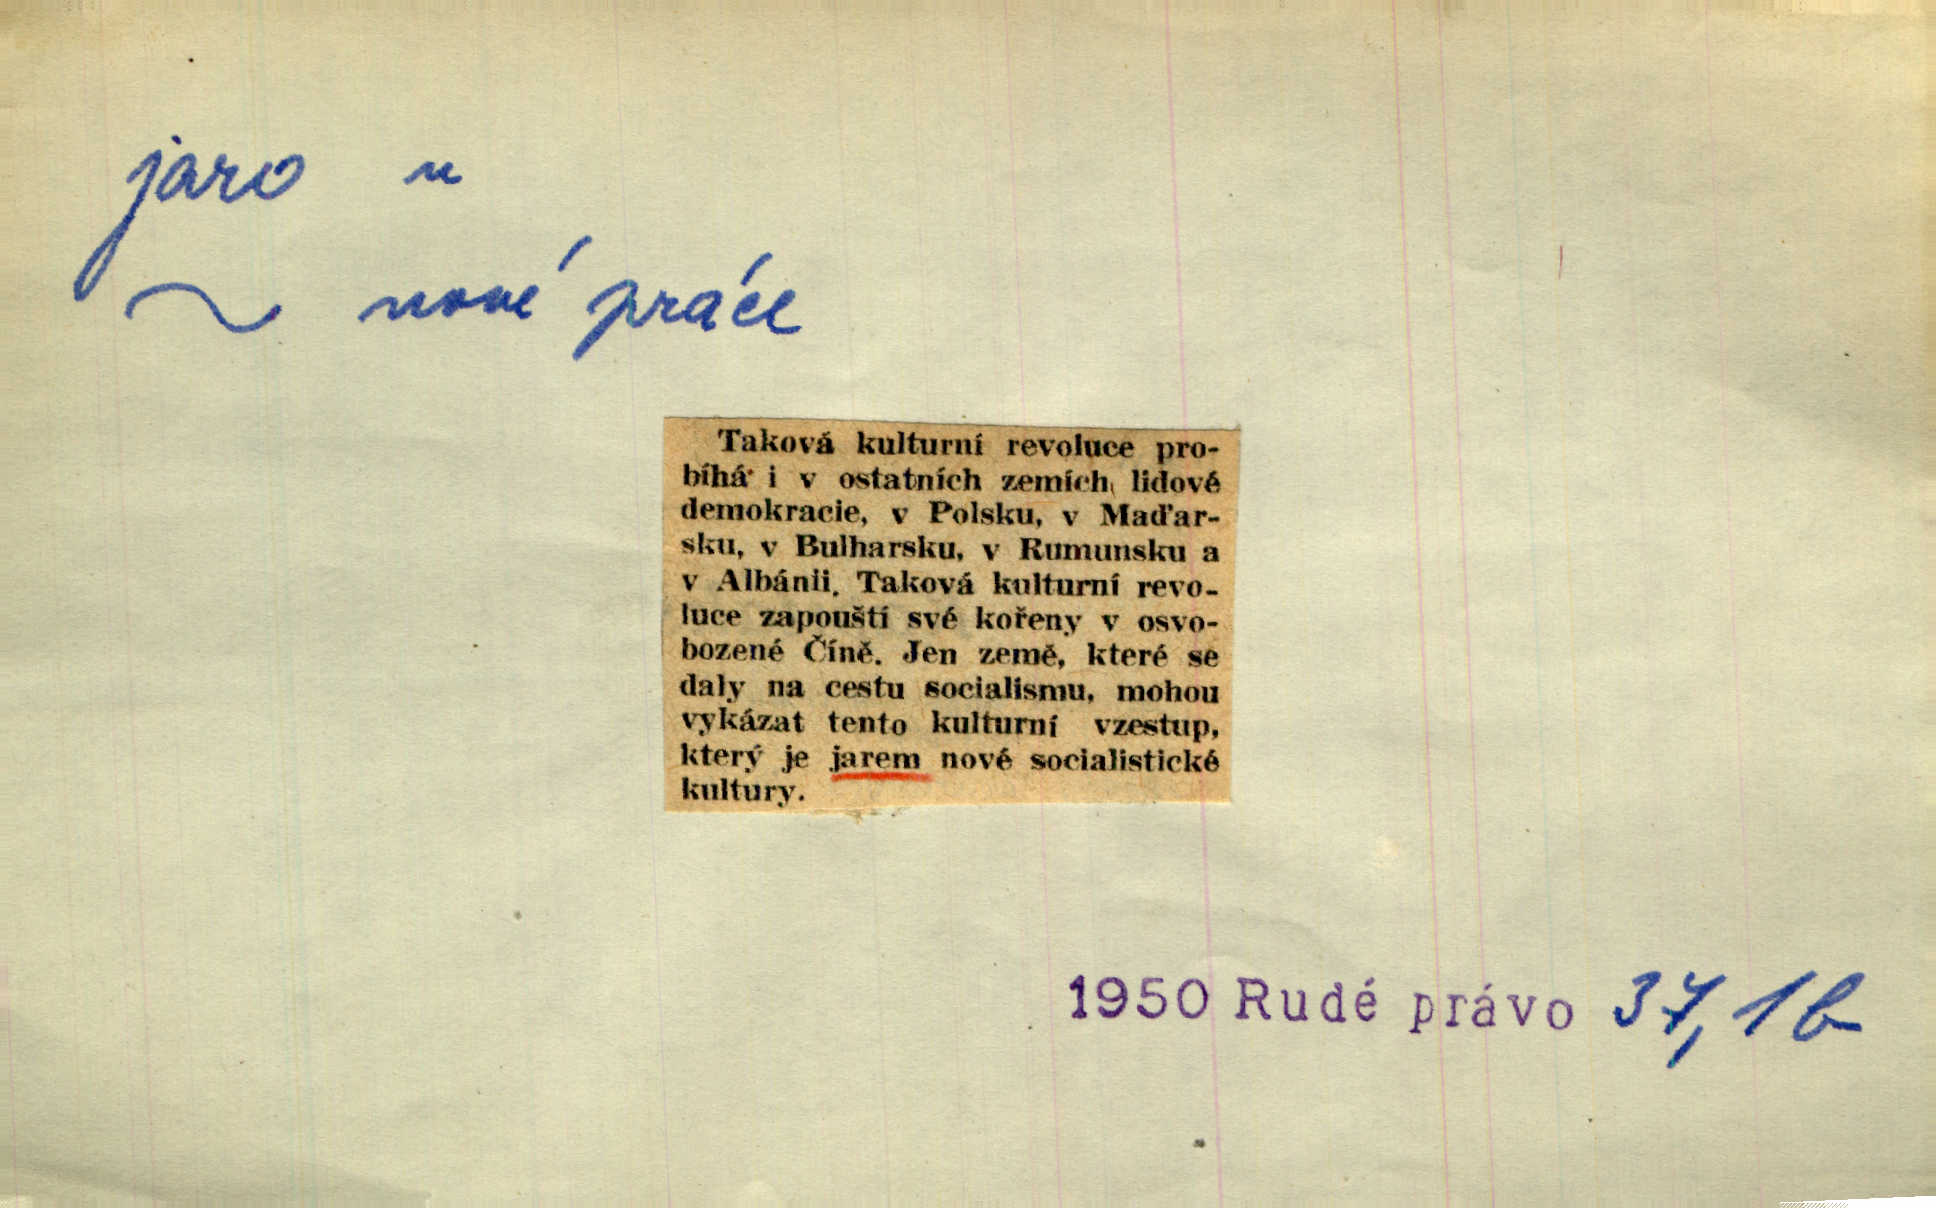 jaro n
~ nové práce
Taková kulturní revoluce pro-
bíhá i v ostatních zemích lidové
demokracie, v Polsku, v Maďar-
sku, v Bulharsku, v Rumunsku a
v Albánii. Taková kulturní revo-
luce zapouští své kořeny v osvo-
bozené Číně. Jen země, které se
daly na cestu socialismu, mohou
vykázat tento kulturní vzestup,
který je jarem nové socialistické
kultury.
1950 Rudé právo 37, 1b